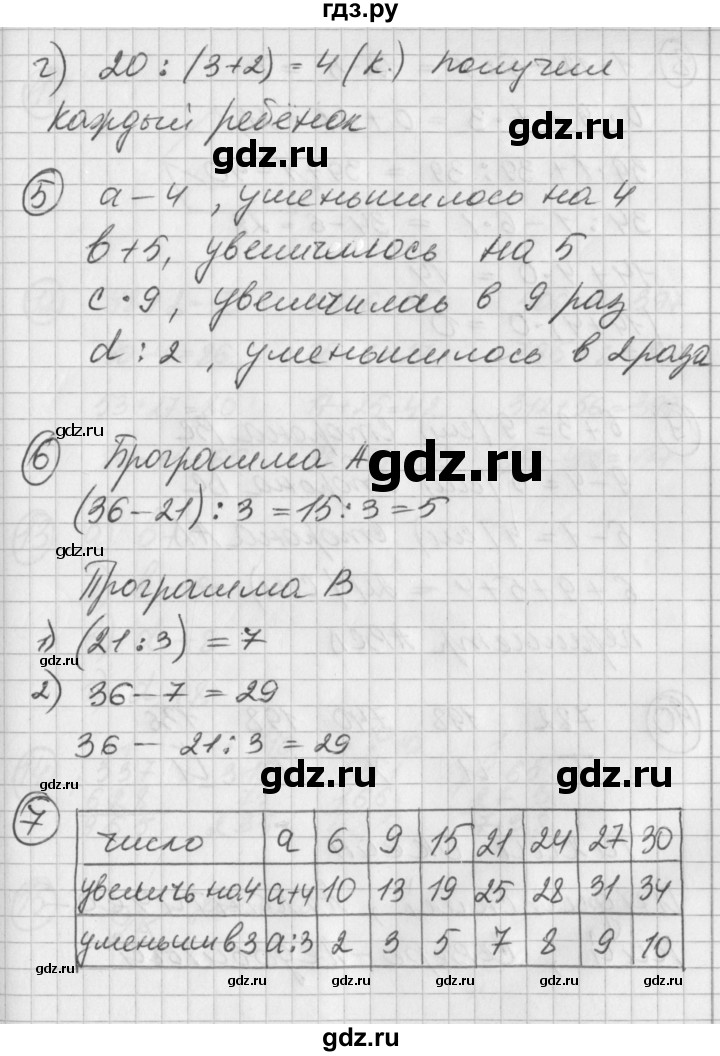 гдз.ру
г) 20 : (3+2) = 4 (к.) получил
каждый ребёнок
gdz.ru gdz.ru
5 a – 4 , уменьшилось на 4
b + 5, увеличилось на 5
c · 9, увеличилась в 9 раз
d : 2 , уменьшилось в 2 раза
gdz.ru
6 Программа A
gdz.ru
(36 – 21) : 3 = 15 : 3 = 5
gdz.ru
Программа B
1) (21 : 3) = 7
gdz.ru
2) 36 – 7 = 29
36 – 21 : 3 = 29
gdz.ru gdz.ru
gdz.ru
7 число a 6 9 15 21 24 27 30
увеличь на 4 a+4 10 13 19 25 28 31 34
уменьши в 3 a:3 2 3 5 7 8 9 10
gdz.ru gdz.ru gdz.ru gdz.ru gdz.ru gdz.ru gdz.ru
gdz.ru